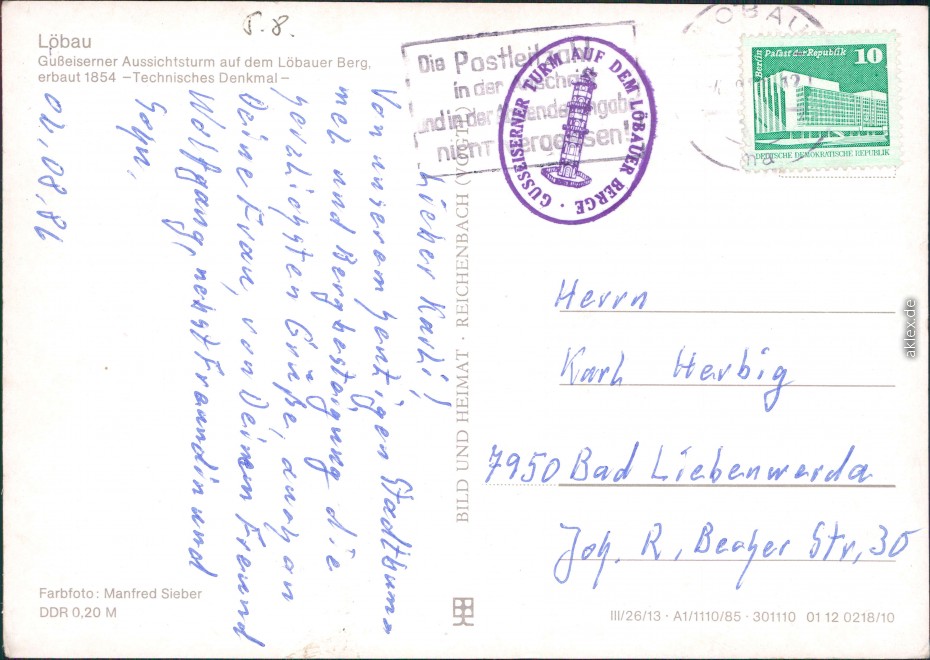 5.8.
Löbau
Gußeiserner Aussichtsturm auf dem Löbauer Berg,
erbaut 1854 –Technisches Denkmal–
Lieber Karli!
Von unserem heutigen Stadtbum-
mel und Bergbesteigung die
herzlichsten Grüße, auch an
Deine Frau, von Deinem Freund
Wolfgang, nebst Freundin und
Sohn,
02,08,86
Farbfoto: Manfred Sieber
DDR 0,20 M
BILD UND HEIMAT · REICHENBACH (VOGTL)
Die Postleitzahl
in der
und in der Absenderangabe
nicht vergessen!
GUSSEISERNER TURM AUF DEM LÖBAUER BERGE ·
LÖBAU
Berlin Palast der Republik 10
DEUTSCHE DEMOKRATISCHE REPUBLIK
Herrn
Karl Herbig
7950 Bad Liebenwerda
Joh. R, Becher Str, 30
III/26/13 · A1/1110/85 · 301110 01 12 0218/10
aklex.de